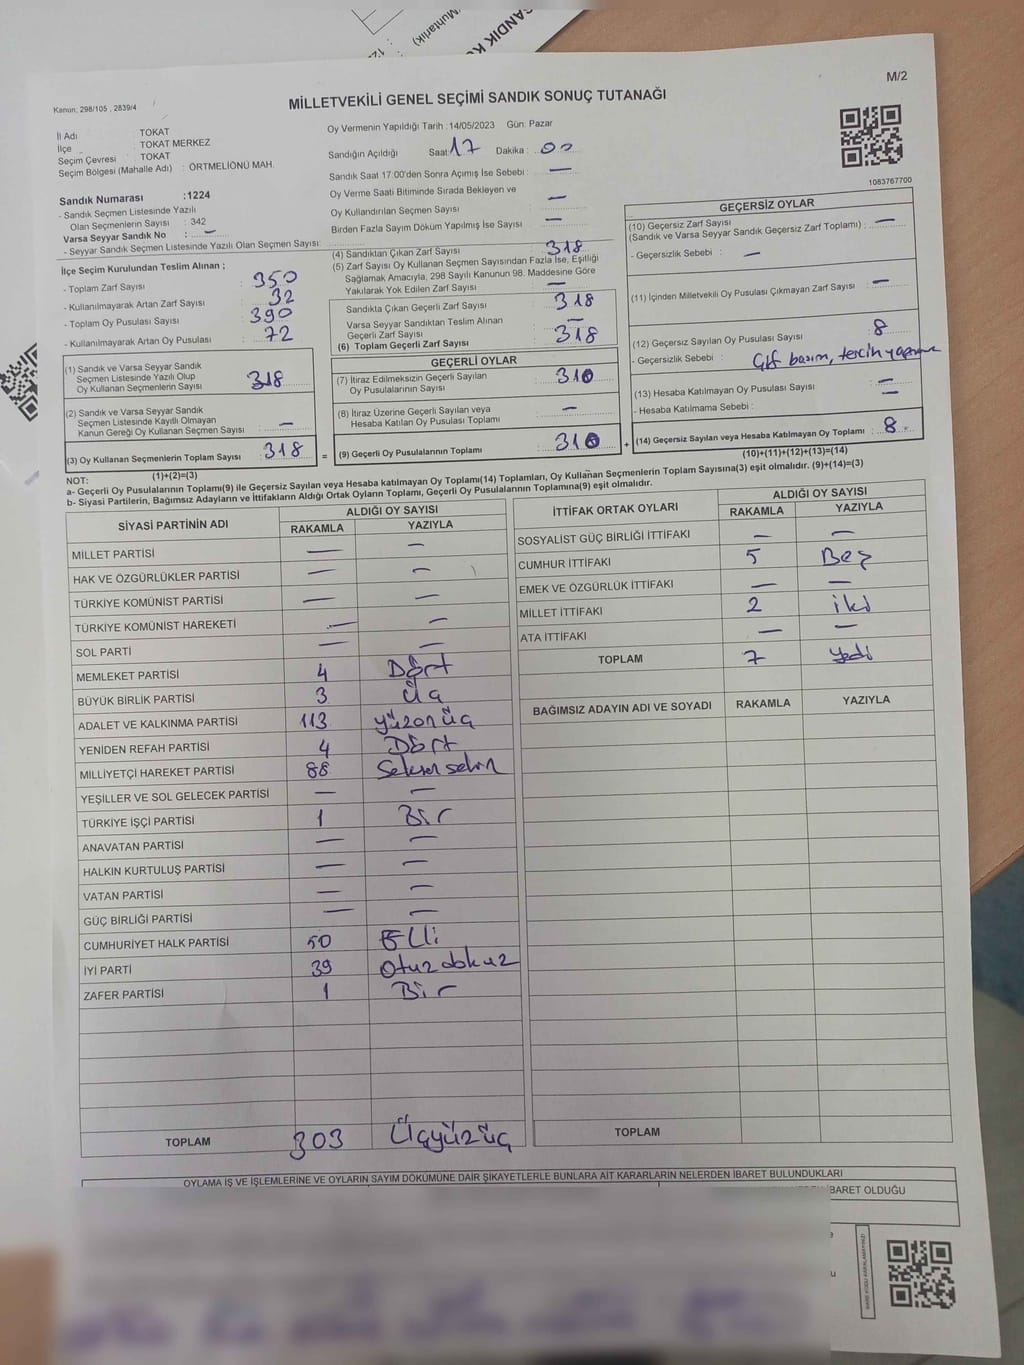 SANDIK K
(Muhtarlık)
M/2
Kanun: 298/105 , 2839/4
MİLLETVEKİLİ GENEL SEÇİMİ SANDIK SONUÇ TUTANAĞI
İl Adı TOKAT
İlçe TOKAT MERKEZ
Seçim Çevresi : TOKAT
Seçim Bölgesi (Mahalle Adı) : ORTMELİÖNÜ MAH.
Oy Vermenin Yapıldığı Tarih :14/05/2023 Gün: Pazar
Sandığın Açıldığı Saat: 17 Dakika : 00
Sandık Saat 17:00'den Sonra Açımış İse Sebebi : —
Oy Verme Saati Bitiminde Sırada Bekleyen ve
Oy Kullandırılan Seçmen Sayısı —
Birden Fazla Sayım Döküm Yapılmış İse Sayısı —
1083767700
Sandık Numarası :1224
- Sandık Seçmen Listesinde Yazılı
Olan Seçmenlerin Sayısı : 342
Varsa Seyyar Sandık No : —
- Seyyar Sandık Seçmen Listesinde Yazılı Olan Seçmen Sayısı:
İlçe Seçim Kurulundan Teslim Alınan ;
- Toplam Zarf Sayısı : 350
- Kullanılmayarak Artan Zarf Sayısı : 32
- Toplam Oy Pusulası Sayısı : 390
- Kullanılmayarak Artan Oy Pusulası : 72
(1) Sandık ve Varsa Seyyar Sandık
Seçmen Listesinde Yazılı Olup
Oy Kullanan Seçmenlerin Sayısı : 318
(2) Sandık ve Varsa Seyyar Sandık
Seçmen Listesinde Kayıtlı Olmayan
Kanun Gereği Oy Kullanan Seçmen Sayısı : —
(3) Oy Kullanan Seçmenlerin Toplam Sayısı : 318
(1)+(2)=(3)
(4) Sandıktan Çıkan Zarf Sayısı : 318
(5) Zarf Sayısı Oy Kullanan Seçmen Sayısından Fazla İse, Eşitliği
Sağlamak Amacıyla, 298 Sayılı Kanunun 98. Maddesine Göre
Yakılarak Yok Edilen Zarf Sayısı : —
Sandıkta Çıkan Geçerli Zarf Sayısı : 318
Varsa Seyyar Sandıktan Teslim Alınan
Geçerli Zarf Sayısı : —
(6) Toplam Geçerli Zarf Sayısı : 318
GEÇERLİ OYLAR
(7) İtiraz Edilmeksizin Geçerli Sayılan
Oy Pusulalarının Sayısı : 310
(8) İtiraz Üzerine Geçerli Sayılan veya
Hesaba Katılan Oy Pusulası Toplamı : —
= (9) Geçerli Oy Pusulalarının Toplamı : 310 +
GEÇERSİZ OYLAR
(10) Geçersiz Zarf Sayısı
(Sandık ve Varsa Seyyar Sandık Geçersiz Zarf Toplamı) : —
- Geçersizlik Sebebi : —
(11) İçinden Milletvekili Oy Pusulası Çıkmayan Zarf Sayısı : —
(12) Geçersiz Sayılan Oy Pusulası Sayısı : 8
- Geçersizlik Sebebi : Çift basım, tercih yapmama
(13) Hesaba Katılmayan Oy Pusulası Sayısı : —
- Hesaba Katılmama Sebebi : —
(14) Geçersiz Sayılan veya Hesaba Katılmayan Oy Toplamı : 8
(10)+(11)+(12)+(13)=(14)
NOT:
a- Geçerli Oy Pusulalarının Toplamı(9) ile Geçersiz Sayılan veya Hesaba katılmayan Oy Toplamı(14) Toplamları, Oy Kullanan Seçmenlerin Toplam Sayısına(3) eşit olmalıdır. (9)+(14)=(3)
b- Siyasi Partilerin, Bağımsız Adayların ve İttifakların Aldığı Ortak Oyların Toplamı, Geçerli Oy Pusulalarının Toplamına(9) eşit olmalıdır.
SİYASİ PARTİNİN ADI ALDIĞI OY SAYISI
RAKAMLA YAZIYLA
MİLLET PARTİSİ — —
HAK VE ÖZGÜRLÜKLER PARTİSİ — —
TÜRKİYE KOMÜNİST PARTİSİ — —
TÜRKİYE KOMÜNİST HAREKETİ — —
SOL PARTİ — —
MEMLEKET PARTİSİ 4 Dört
BÜYÜK BİRLİK PARTİSİ 3 Üç
ADALET VE KALKINMA PARTİSİ 113 yüzonüç
YENİDEN REFAH PARTİSİ 4 Dört
MİLLİYETÇİ HAREKET PARTİSİ 88 Seksensekiz
YEŞİLLER VE SOL GELECEK PARTİSİ — —
TÜRKİYE İŞÇİ PARTİSİ 1 Bir
ANAVATAN PARTİSİ — —
HALKIN KURTULUŞ PARTİSİ — —
VATAN PARTİSİ — —
GÜÇ BİRLİĞİ PARTİSİ — —
CUMHURİYET HALK PARTİSİ 50 Elli
İYİ PARTİ 39 Otuzdokuz
ZAFER PARTİSİ 1 Bir
TOPLAM 303 Üçyüzüç
İTTİFAK ORTAK OYLARI ALDIĞI OY SAYISI
RAKAMLA YAZIYLA
SOSYALİST GÜÇ BİRLİĞİ İTTİFAKI — —
CUMHUR İTTİFAKI 5 Beş
EMEK VE ÖZGÜRLÜK İTTİFAKI — —
MİLLET İTTİFAKI 2 iki
ATA İTTİFAKI — —
TOPLAM 7 yedi
BAĞIMSIZ ADAYIN ADI VE SOYADI RAKAMLA YAZIYLA
TOPLAM
OYLAMA İŞ VE İŞLEMLERİNE VE OYLARIN SAYIM DÖKÜMÜNE DAİR ŞİKAYETLERLE BUNLARA AİT KARARLARIN NELERDEN İBARET BULUNDUKLARI
İBARET OLDUĞU